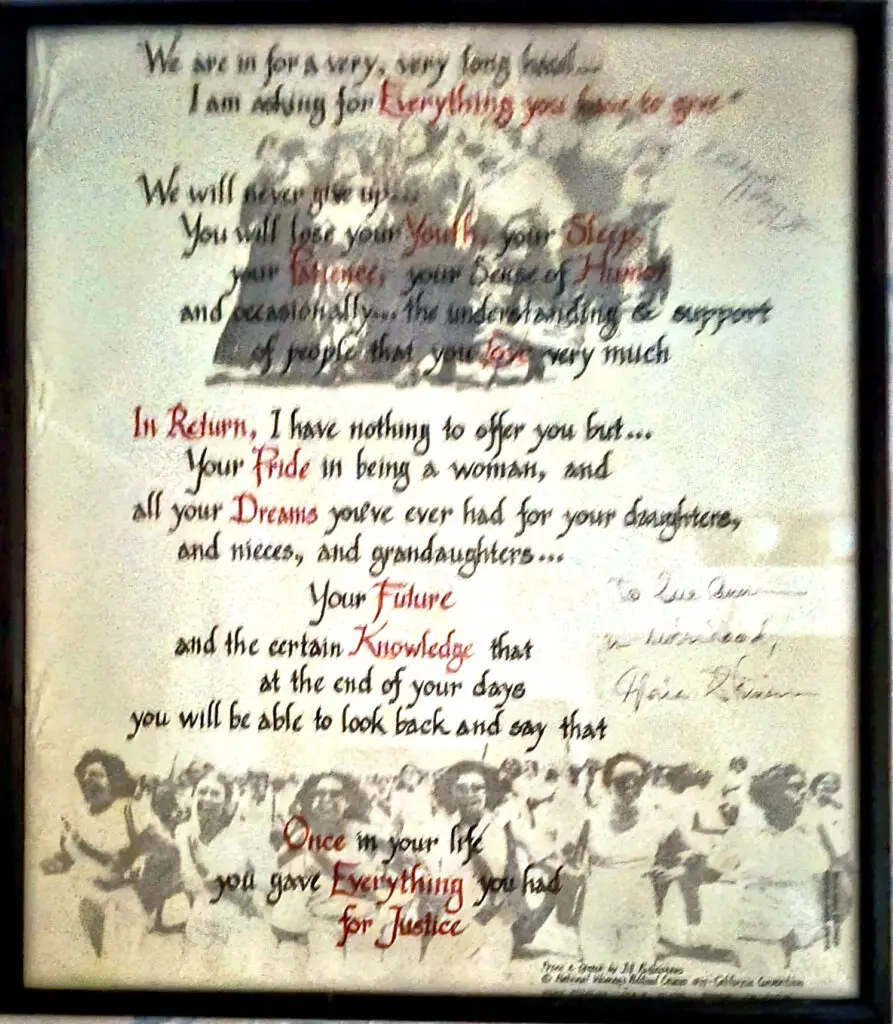 We are in for a very, very long haul...
I am asking for Everything you have to give"
We will never give up...
You will lose your Youth, your Sleep,
your Patience, your Sense of Humor
and occasionally... the understanding & support
of people that you Love very much
In Return, I have nothing to offer you but...
Your Pride in being a woman, and
all your Dreams you've ever had for your daughters,
and nieces, and grandaughters...
Your Future
and the certain Knowledge that
at the end of your days
you will be able to look back and say that
Once in your life
you gave Everything you had
for Justice
To Sue
in
From a Speech by Jill
© National Women's Political Caucus California Convention